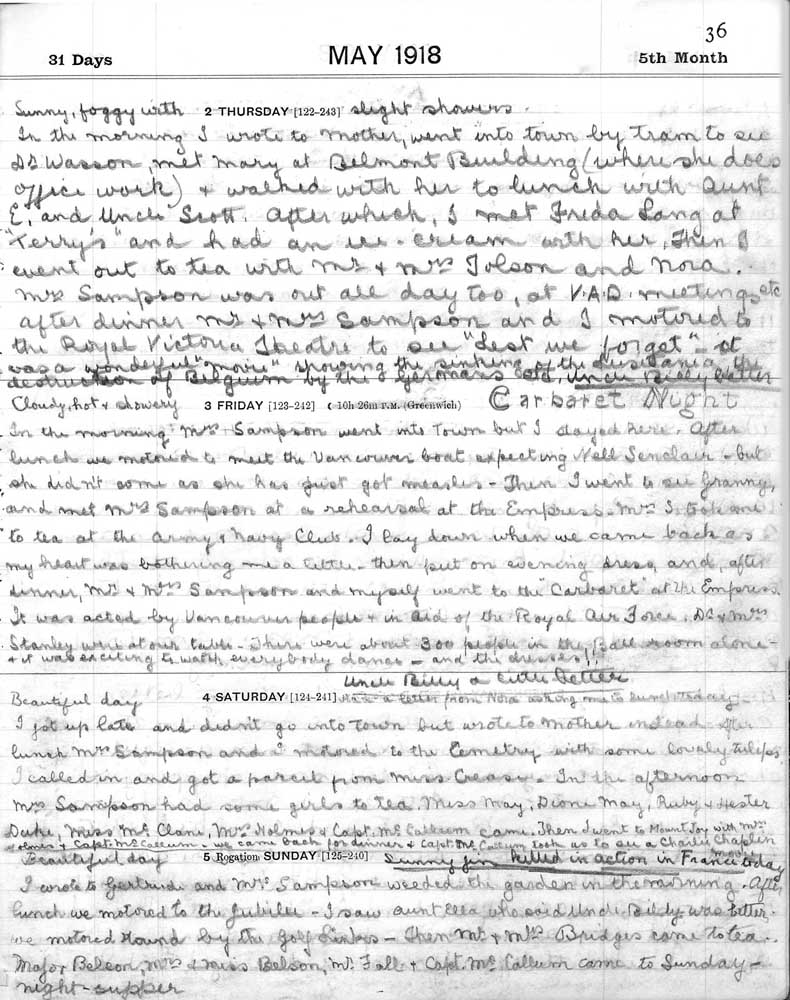 36
31 Days MAY 1918 5th Month
Sunny, foggy with 2 THURSDAY [122-243] slight showers.
In the morning I wrote to Mother, went into town by tram to see
Dr Wasson, met Mary at Belmont Building (where she does
office work) & walked with her to lunch with Aunt
E, and Uncle Scott. After which, I met Freda Lang at
"Terry's" and had an ice-cream with her, then I
went out to tea with Mr & Mrs Tolson and Nora.
Mrs Sampson was out all day too, at V.A.D. meetings, etc
after dinner Mr & Mrs Sampson and I motored to
the Royal Victoria Theatre to see "Lest we forget" - it
was a wonderful "movie" showing the sinking of the Lusitania, the
destruction of Belgium by the Germans etc, Uncle Billy better
Cloudy, hot & showery 3 FRIDAY [123-242] ☾ 10h 26m P.M. (Greenwich) Carbaret Night
In the morning Mrs Sampson went into Town but I stayed here. After
lunch we motored to meet the Vancouver boat expecting Nell Senclair - but
she didn't come as she has just got measles - Then I went to see Granny,
and met Mrs Sampson at a rehearsal at the Empress - Mrs S. took me
to tea at the Army & Navy Club. I lay down when we came back as
my heart was bothering me a little - then put on evening dress, and, after
dinner, Mr & Mrs Sampson and myself went to the "Carbaret" at the Empress.
It was acted by Vancouver people & in aid of the Royal Air Force. Dr & Mrs
Stanley were at our table - There were about 300 people in the Ball room alone -
& it was exciting to watch everybody dance - and the dresses!!
Uncle Billy a little better
Beautiful day 4 SATURDAY [124-241] Had a letter from Nora asking me to lunch today -
I got up late and didn't go into Town but wrote to Mother instead. After
lunch Mrs Sampson and I motored to the Cemetry with some lovely tulips
I called in and got a parcel from Miss Crease. In the afternoon
Mrs Sampson had some girls to tea, Miss May, Dione May, Ruby & Hester
Duke, Miss Mc Clane, Mrs Holmes & Capt. Mc Callum came. Then I went to Mount Joy with Mrs
Holmes & Capt. Mc Callum - we came back for dinner & Capt. Mc Callum took us to see a Charlie Chaplin
movie
Beautiful day 5 Rogation SUNDAY [125-240] Sunny Jim killed in action in France today
I wrote to Gertrude and Mrs Sampson weeded the garden in the morning. After
lunch we motored to the Jubilee - I saw aunt Ella who said Uncle Billy was better.
we motored round by the Golf Links - Then Mr & Mrs Bridges came to tea.
Major Belson, Mrs & Miss Belson, Mr Fall & Capt. Mc Callum came to Sunday-
night-supper